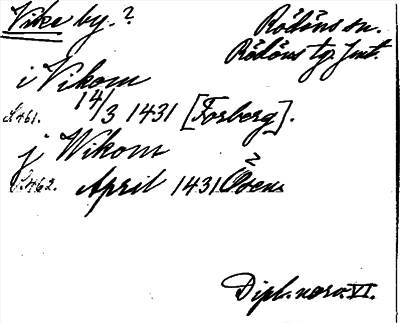 Vike by.? Rödöns sn.
Rödöns tg. Jmt.
i Vikom
S. 461. 14/3 1431 [Forberg].
j Wikom
S. 462. April 1431 Åsen ?
Dipl. norv. VI.